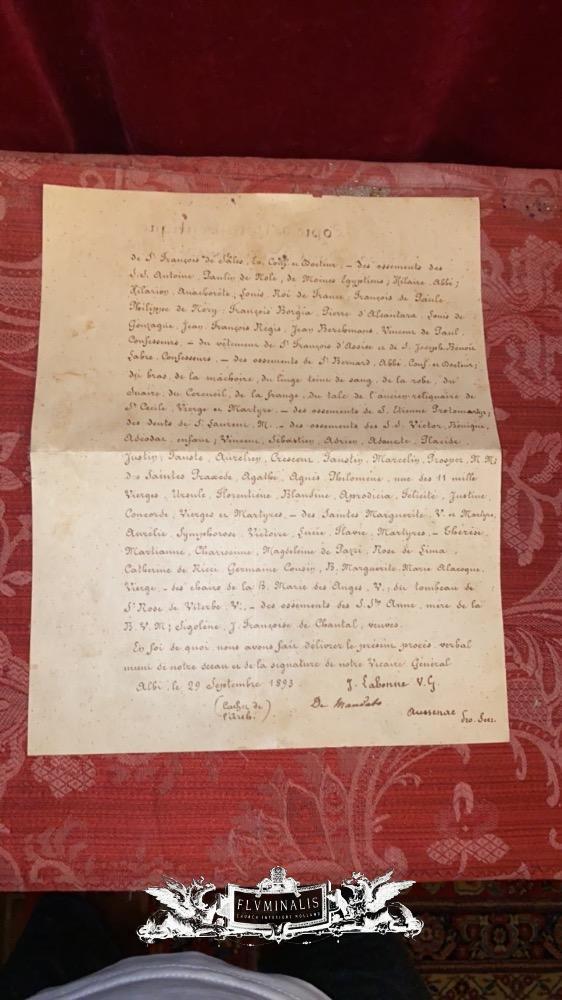 de St François de Sales, Ev. Conf. et Docteur, – des ossements des
S.S. Antoine, Paulin de Nole, de Moines Egyptiens; Hilaire, Abbé;
Hilarion, Anachorète; Louis, Roi de France, François de Paule
Philippe de Néry, François Borgia, Pierre d'Alcantara, Louis de
Gonzague, Jean François Régis, Jean Berchmans, Vincent de Paul,
Confesseurs, – du vêtement de St François d'Assise et de S. Joseph-Benoit
Labre, Confesseurs, – des ossements de St Bernard, Abbé, Conf. et Docteur;
du bras, de la mâchoire, du linge teint de sang, de la robe, du
Suaire, du Cercueil, de la frange, du talc de l'ancien reliquaire de
Ste Cécile, Vierge et Martyre, – des ossements de S. Etienne Protomartyr;
des dents de St Laurent, M. – des ossements des S.S. Victor, Bénigne,
enfant; Vincent, Sébastien, Adrien, Placide,
Justin, Fauste, Aurélien, Crescent, Faustin, Marcelin, Prosper, M.M;
des Saintes Praxède, Agathe, Agnès, Philomène, une des 11 mille
Vierges, Ursule, Florentine, Blandine, Aprodicia, Félicité, Justine
Concorde, Vierges et Martyres, – des Saintes Marguerite, V. et Martyre,
Aurélie, Symphorose, Victoire, Lucie, Flavie, Martyres, – Thérèse,
Martianne, Charissime, Magdeleine de Pazzi, Rose de Lima,
Catherine de Ricci, Germaine Cousin, B. Marguerite Marie Alacoque,
Vierge, – des chairs de la B. Marie des Anges, V.; du tombeau de
Ste Rose de Viterbe, V., – des ossements des S.Stes Anne, mère de la
B. V. M; Sigolène, J. Françoise de Chantal, veuves.
En foi de quoi nous avons fait délivrer le présent procès-verbal
muni de notre sceau et de la signature de notre Vicaire Général
Albi, le 29 Septembre 1893
J. Labonne V. G.
(Cachet de l'Arch.)
De Mandato
Aussenac Pro. Secr.
FLVMINALIS
CHURCH INTERIORS HOLLAND